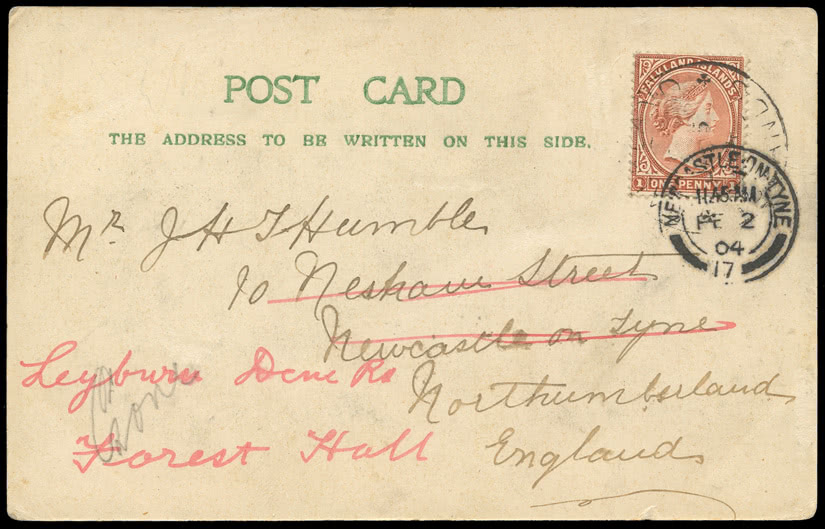 POST CARD
THE ADDRESS TO BE WRITTEN ON THIS SIDE.
FALKLAND ISLANDS
1 ONE PENNY
NEWCASTLE-ON-TYNE
11.45 AM
FE 2
04
17
Mr J H T Humble
10 Nesham Street
Newcastle on Tyne
Northumberland
England
Leyburn Dene Rd
Forest Hall